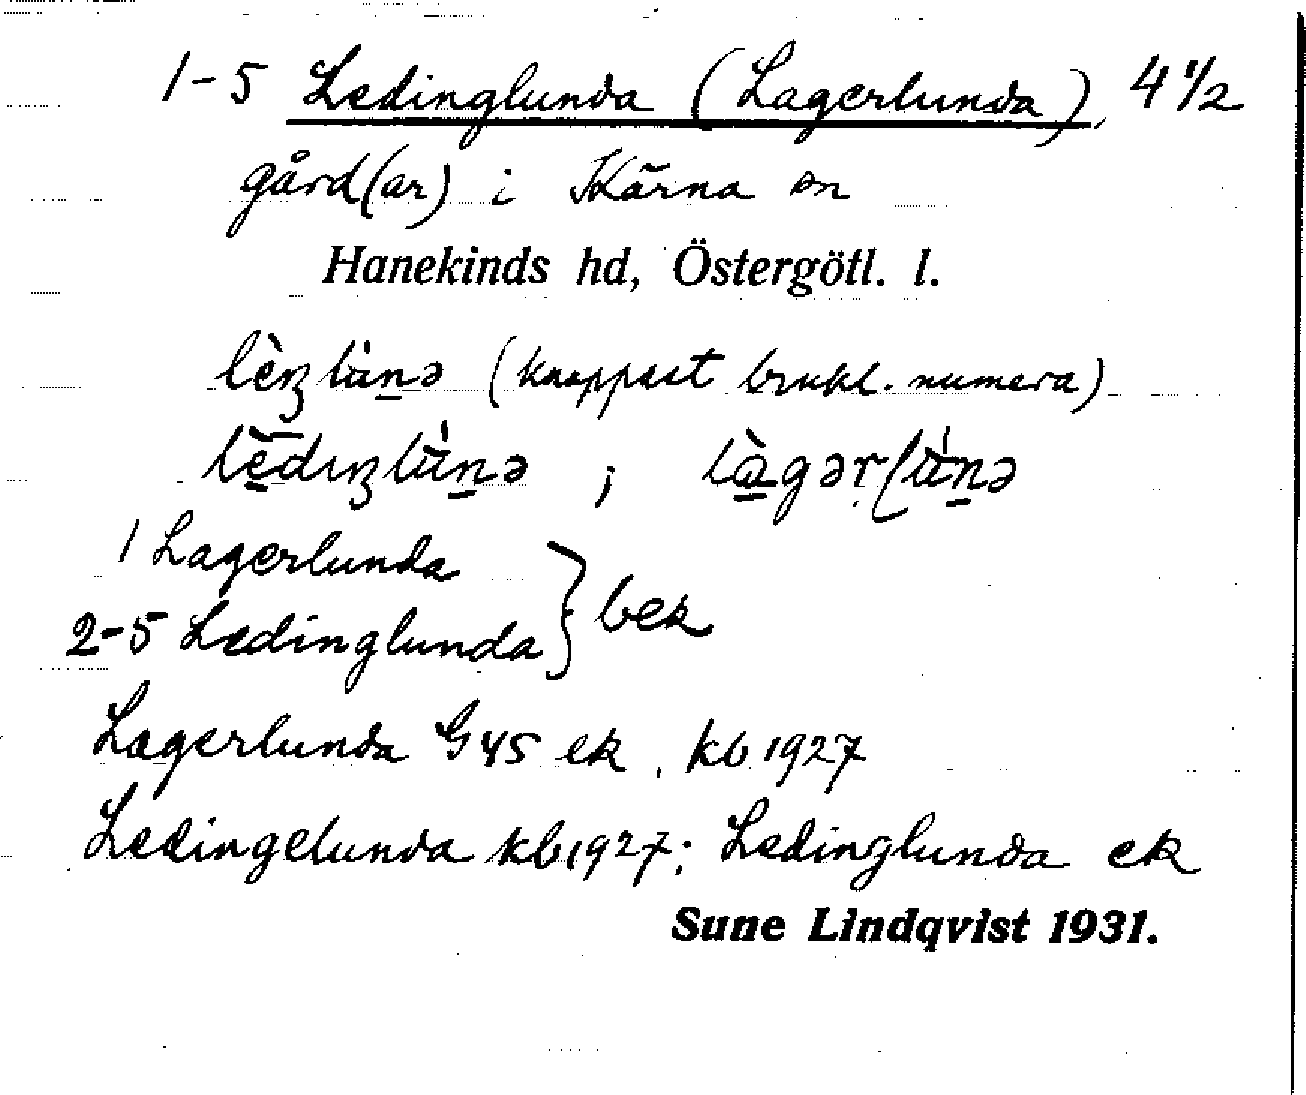 1-5 Ledinglunda (Lagerlunda), 4 1/2
gård(ar) i Kärna sn
Hanekinds hd, Östergötl. l.
(knappast brukl. numera)
;
1 Lagerlunda
2-5 Ledinglunda } bek
Lagerlunda G45 ek, kb 1927
Ledingelunda kb 1927; Ledinglunda ek
Sune Lindqvist 1931.